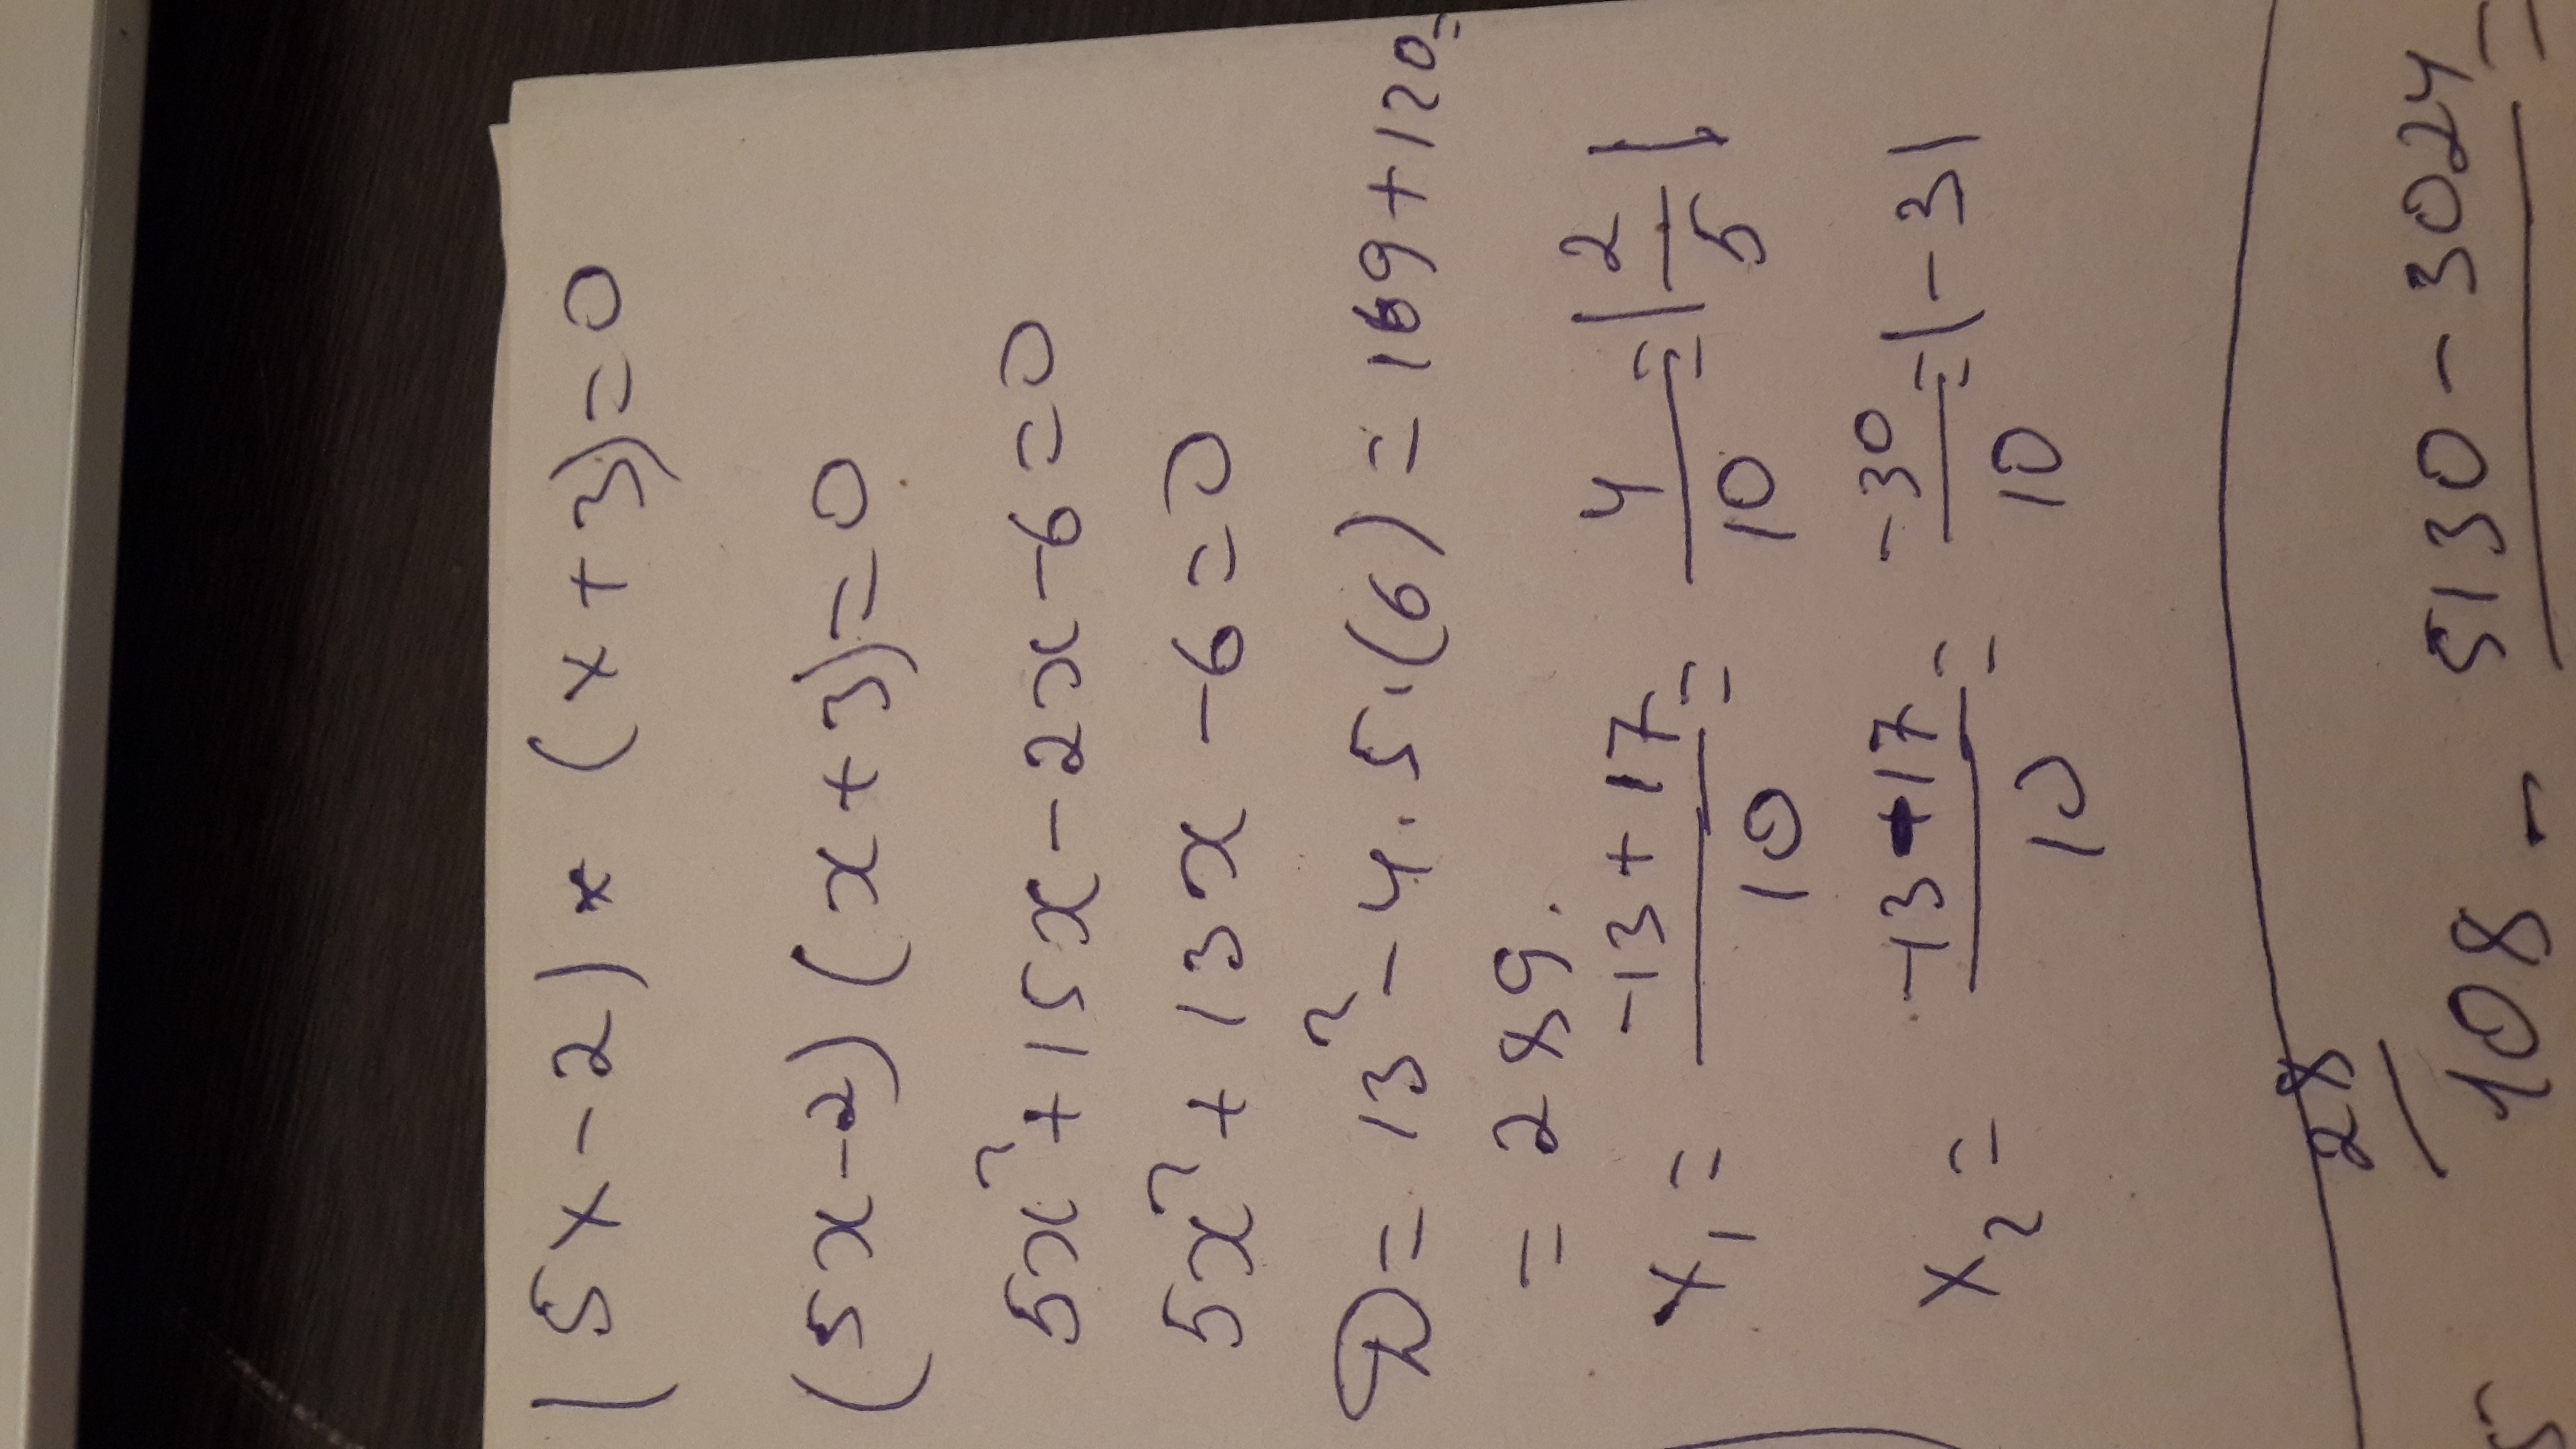 (5x-2)*(x+3)=0
(5x-2)(x+3)=0
5x²+15x-2x-6=0
5x²+13x-6=0
D=13²-4·5·(6)=169+120=
=289.
x₁= -13+17/10 = 4/10 = |2/5|
x₂= -13+17/10 = -30/10 = |-3|
28
108 - 5130-3024 =